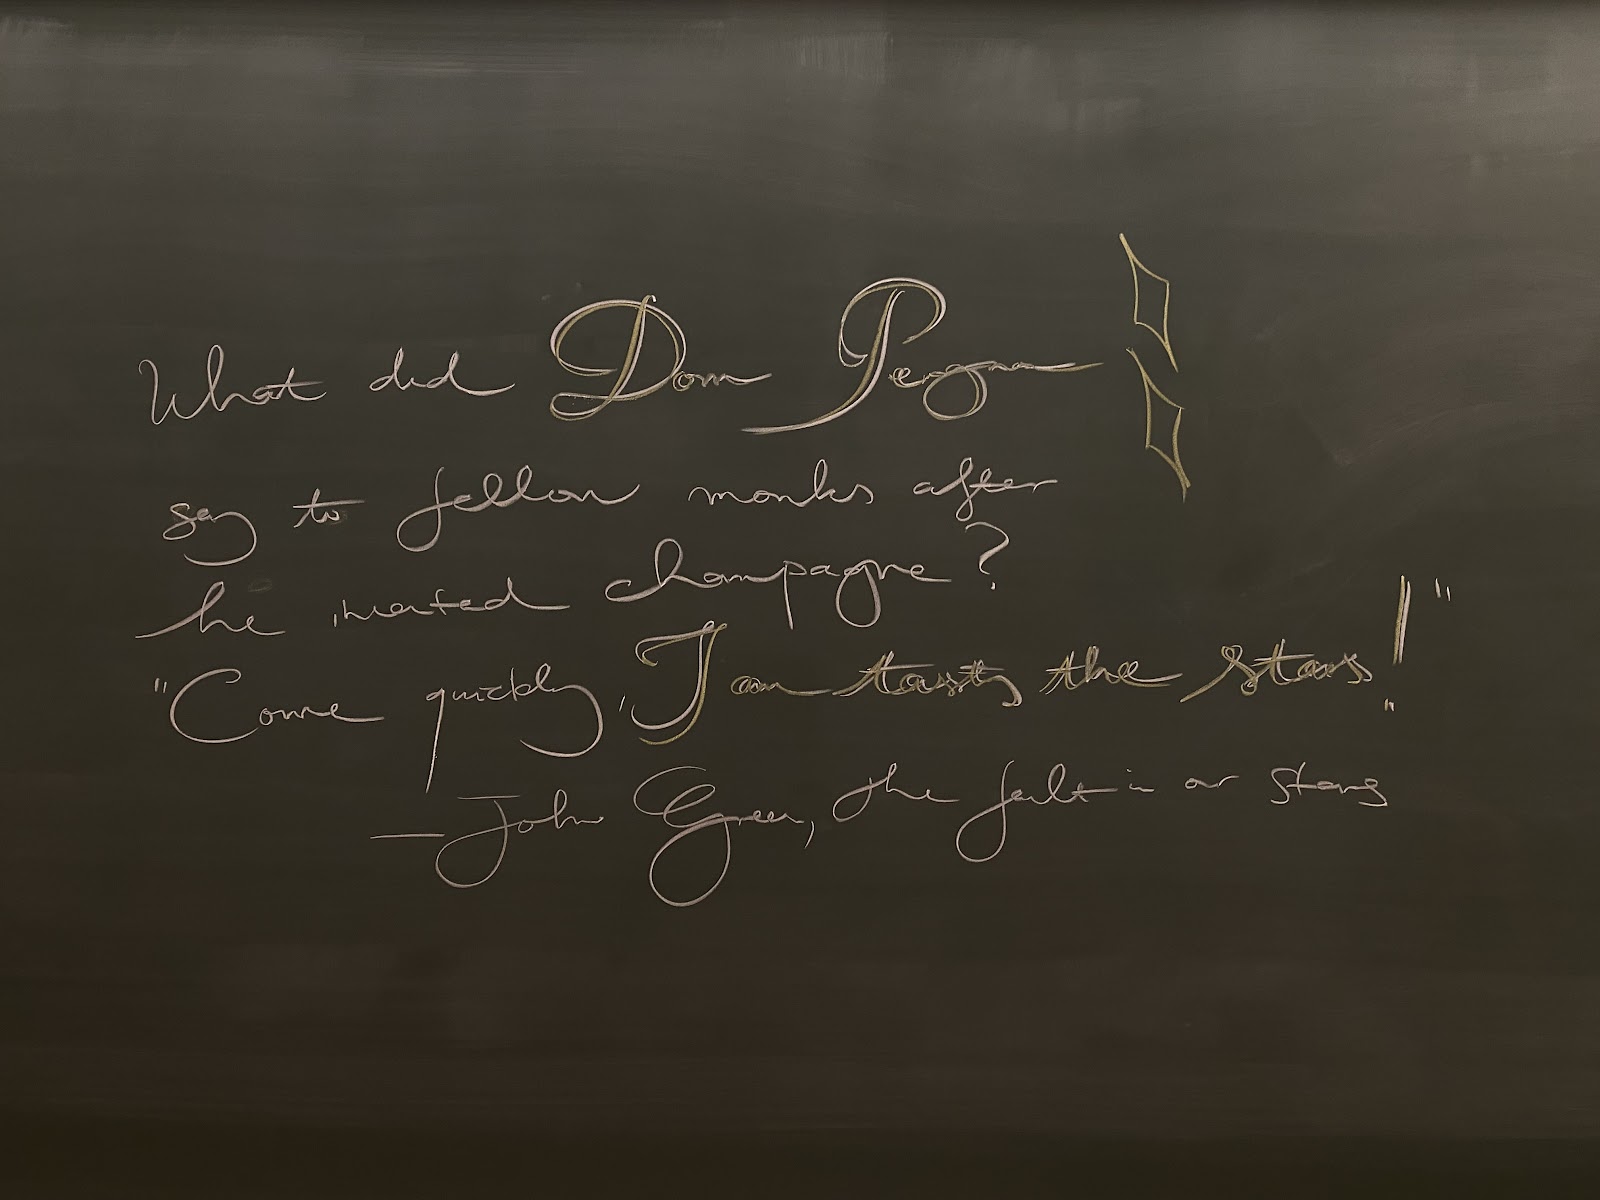 What did Dom Perogno
say to fellow monks after
he invented champagne?
"Come quickly, I am tasting the stars!"
— John Green, the fault in our stars